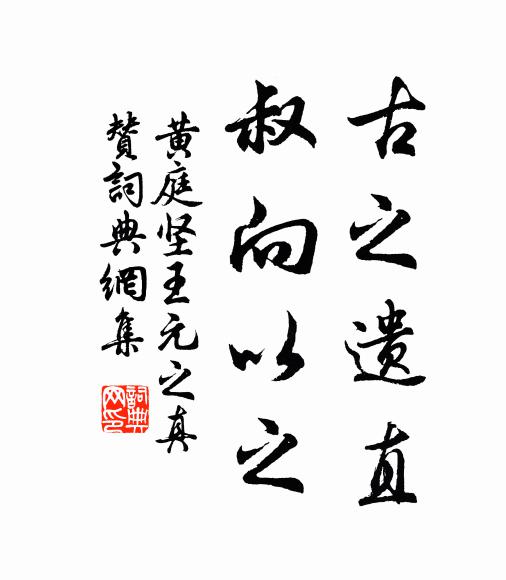 古之遺直
叔向以之
黄庭坚王元之真
赞詞典網集
詞典网印